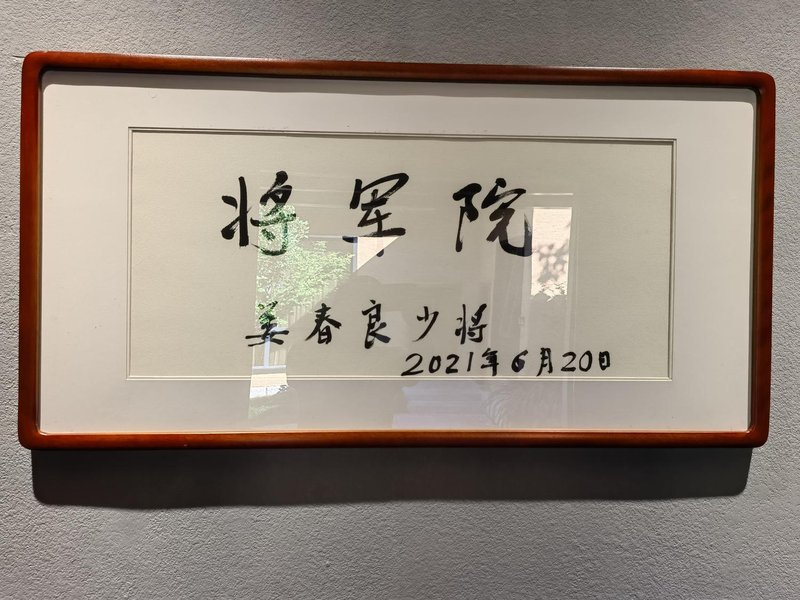 将军院
姜春良少将
2021年6月20日